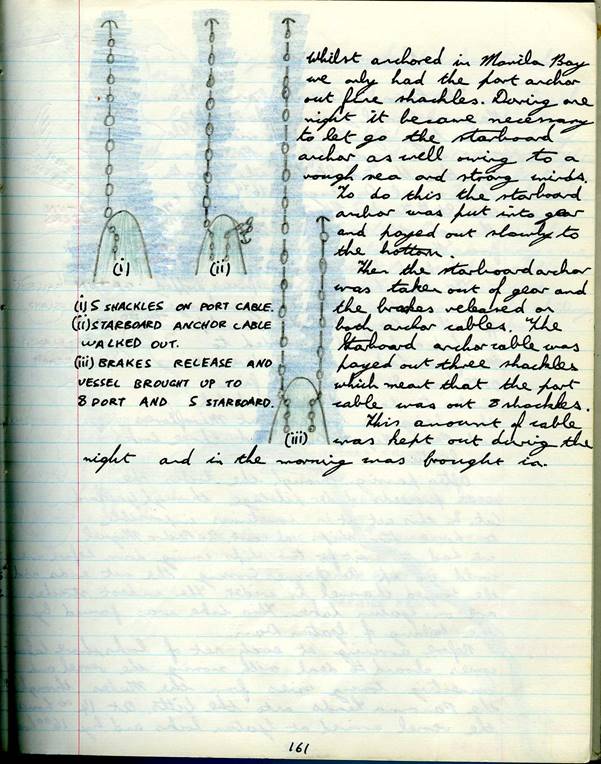 Whilst anchored in Manila Bay
we only had the port anchor
out five shackles. During one
night it became necessary
to let go the starboard
anchor as well owing to a
rough sea and strong winds.
To do this the starboard
anchor was put into gear
and payed out slowly to
the bottom.
Then the starboard anchor
was taken out of gear and
the brakes released on
both anchor cables. The
Starboard anchor cable was
payed out three shackles
which meant that the port
cable was out 8 shackles.
This amount of cable
was kept out during the
night and in the morning was brought in.
(i)
(ii)
(i) 5 SHACKLES ON PORT CABLE.
(ii) STARBOARD ANCHOR CABLE
WALKED OUT.
(iii) BRAKES RELEASE AND
VESSEL BROUGHT UP TO
8 PORT AND 5 STARBOARD.
(iii)
161